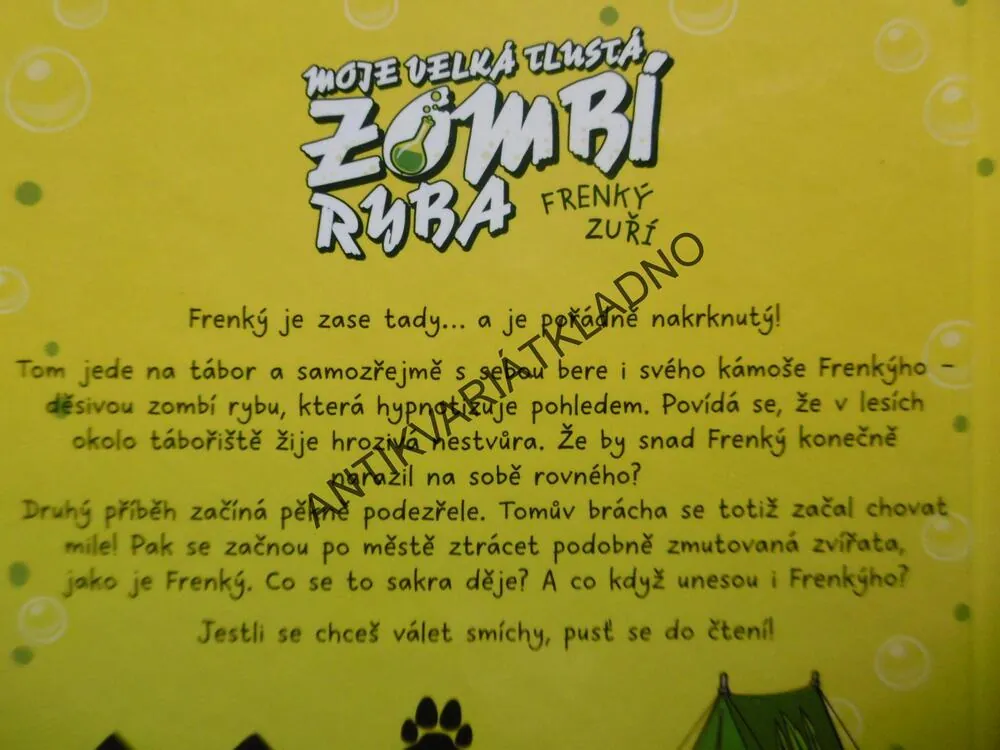 MOJE VELKÁ TLUSTÁ
ZOMBÍ
RYBA
FRENKÝ
ZUŘÍ
Frenký je zase tady... a je pořádně nakrknutý!
Tom jede na tábor a samozřejmě s sebou bere i svého kámoše Frenkýho –
děsivou zombí rybu, která hypnotizuje pohledem. Povídá se, že v lesích
okolo tábořiště žije hrozivá nestvůra. Že by snad Frenký konečně
narazil na sobě rovného?
Druhý příběh začíná pěkně podezřele. Tomův brácha se totiž začal chovat
mile! Pak se začnou po městě ztrácet podobně zmutovaná zvířata,
jako je Frenký. Co se to sakra děje? A co když unesou i Frenkýho?
Jestli se chceš válet smíchy, pusť se do čtení!
ANTIKVARIÁTKLADNO